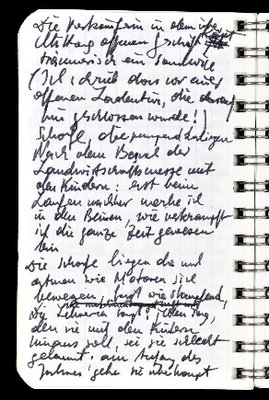 Die Verkäuferin in dem über
Mittag offenen Geschäft
träumerisch ein Sandwich
(Ich schrieb das vor einer
offenen Ladentür, die darauf
hin geschlossen wurde!)
Schafe, die
Nach dem Besuch der
Landwirtschaftsmesse mit
den Kindern: erst beim
Laufen nachher merke ich
in den Beinen, wie verkrampft
ich die ganze Zeit gewesen
bin
Die Schafe liegen da und
atmen wie Motoren sich
bewegen
Die Lehrerin sagt: jeden Tag,
den sie mit den Kindern
hinaus soll, sei sie schlecht
gelaunt. am Anfang des
Jahres gehe sie überhaupt